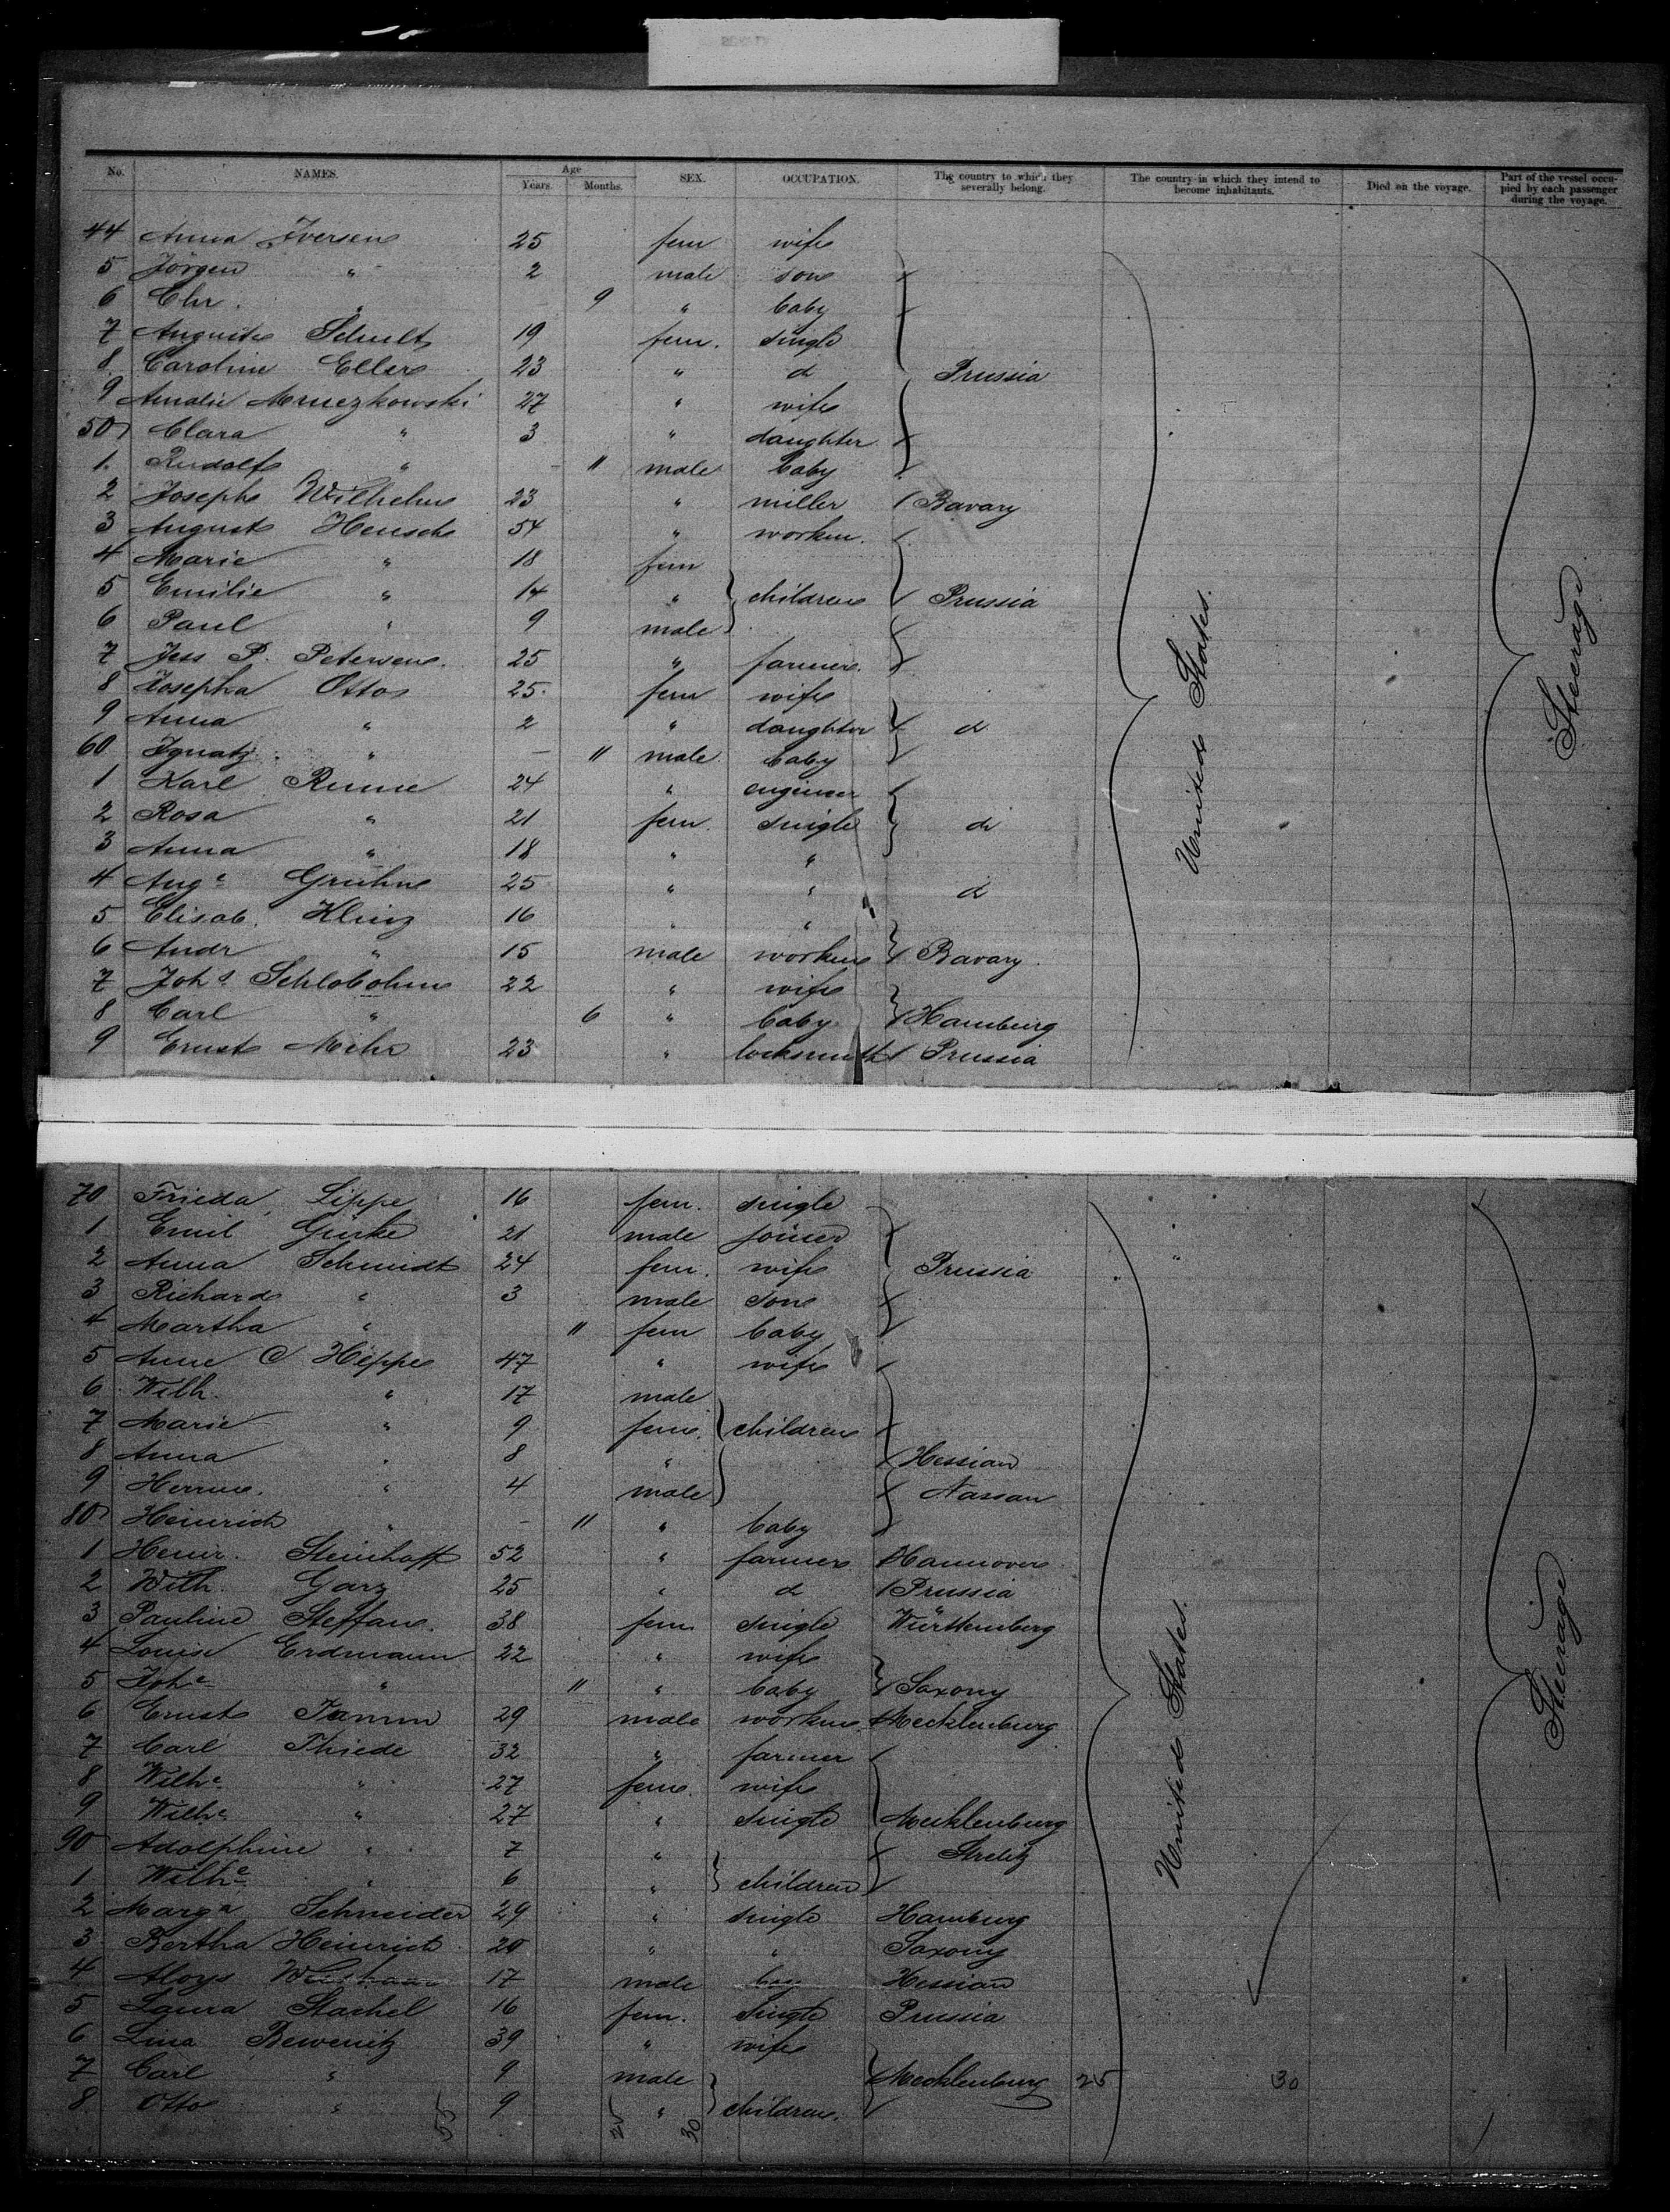 No. NAMES. Age Years. Months. SEX. OCCUPATION. The country to which they severally belong. The country in which they intend to become inhabitants. Died on the voyage. Part of the vessel occupied by each passenger during the voyage.
44 Anna Iversen 25 fem wife
5 Jörgen " 2 male son
6 Chr. " 9 " baby
7 Auguste Schult 19 fem. single
8 Caroline Ellers 23 " d Prussia
9 Amalie 27 " wife
50 Clara " 3 " daughter
1 Rudolf " - 11 male baby
2 Joseph Wilhelm 23 " miller Bavary
3 August Hensch 54 " workm.
4 Marie " 18 fem
5 Emilie " 14 " children Prussia
6 Paul " 9 male
7 Jess P. Petersen. 25 " farmer
8 Josepha Otto 25 fem wife
9 Anna " 2 " daughter d
60 Ignatz " - 11 male baby
1 Karl Runne 24 " engineer
2 Rosa " 21 fem. single d
3 Anna " 18 " "
4 Auge Gruhn 25 " " d
5 Elisab. Klinz 16 " "
6 Andr " 15 male workm Bavary
7 Johs Schlobohm 22 " wife
8 Carl " 6 " baby Hamburg
9 Ernst Mehr 23 " locksmith Prussia
United States.
Steerage
70 Frieda Lippe 16 fem. single
1 Emil Gürke 21 male joiner
2 Anna Schmidt 24 fem. wife Prussia
3 Richard " 3 male son
4 Martha " 11 fem baby
5 Anne C Heppe 47 " wife
6 Wilh. " 17 male
7 Marie " 9 fem. children
8 Anna " 8 " Hessian
9 Herm. " 4 male Nassau
80 Heinrich " - 11 " baby
1 Heinr. Steinhoff 52 " farmer Hannover
2 Wilh. Garz 25 " d Prussia
3 Pauline Steffan. 38 fem. single Württemberg
4 Louise Erdmann 22 " wife
5 Johe " 11 " baby Saxony
6 Ernst Tamm 29 male workm. Mecklenburg
7 Carl Thiede 32 " farmer
8 Wilhe " 27 fem. wife
9 Wilhe " 27 " single Mecklenburg
90 Adolphine " 7 " Strelitz
1 Wilhe " 6 " children
2 Marga Schneider 29 " single Hamburg
3 Bertha Heinrich 20 " " Saxony
4 Aloys 17 male Hessian
5 Laura Stachel 16 fem. single Prussia
6 Lina Bewenitz 39 " wife
7 Carl " 9 male Mecklenburg 25 30
8 Otto " 9 " children.
55 25 30
United States.
Steerage